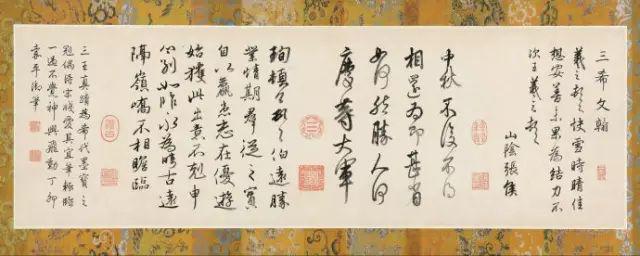 三希文翰
羲之頓首快雪時晴佳
想安善未果為結力不
次王羲之頓首
山陰張侯
中秋不復不得
相還為即甚省
如何然勝人何
慶等大軍
珣頓首頓首伯遠勝
業情期群從之寶
自以羸患志在優遊
始獲此出意不剋申
分別如昨永為疇古遠
隔嶺嶠不相瞻臨
三王真蹟為希代墨寶之
冠偶得宋牋愛其宜筆臨
一過不覺神興飛動丁卯
嘉平御筆